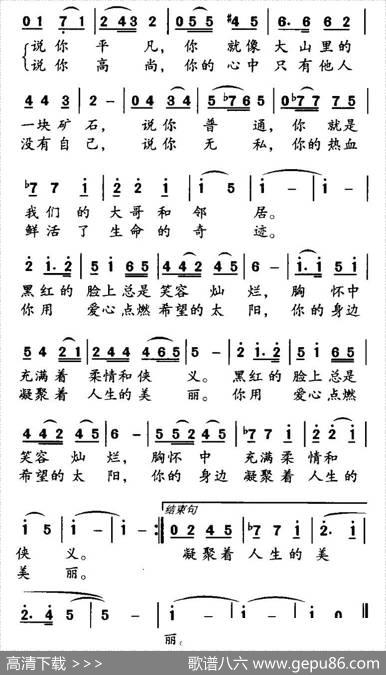 01 7 1 | 2432 · | 055 #45 | 6· 662 |
说你 平 凡，你 就像 大山里的
说你 高 尚，你的 心中 只有他人
44 3 | 2 - | 04 34 | 5♭765 | 0♭77 75 |
一块矿 石， 说你 普 通， 你 就是
没有自 己， 说你 无 私， 你的热血
♭77 1 | 22 1 | 1 5 | 1 - | 1 - |
我们 的 大哥和 邻 居。
鲜活 了 生命的 奇 迹。
2 1·2 | 51 65 | 4424 45 | 6 - | 1·1 51 |
黑 红的 脸上总是 笑容 灿 烂， 胸 怀中
你 用 爱心点燃 希望的太 阳， 你 的身边
54 21 | 244 4465 | 5 - | 2 1·2 | 51 65 |
充满着 柔情和侠 义。 黑 红的 脸上总是
凝聚着 人生的美 丽。 你 用 爱心点燃
442 45 | 6 - | 1·1 51 | ♭77 1 | 22 1 |
笑容 灿 烂， 胸怀 中 充满 柔情 和
希望的 太 阳， 你的 身边 凝聚着 人生的
1 5 | 1 - | 1 - :|| 0245 | ♭77 1 | 2· 1 |
结束句
侠 义。 凝聚着 人生的 美
美 丽。
2· 45 | 5 - | 1 - | 1 - | 1 0 ||
丽。
高清下载 >>>
歌谱八六 www.gepu86.com